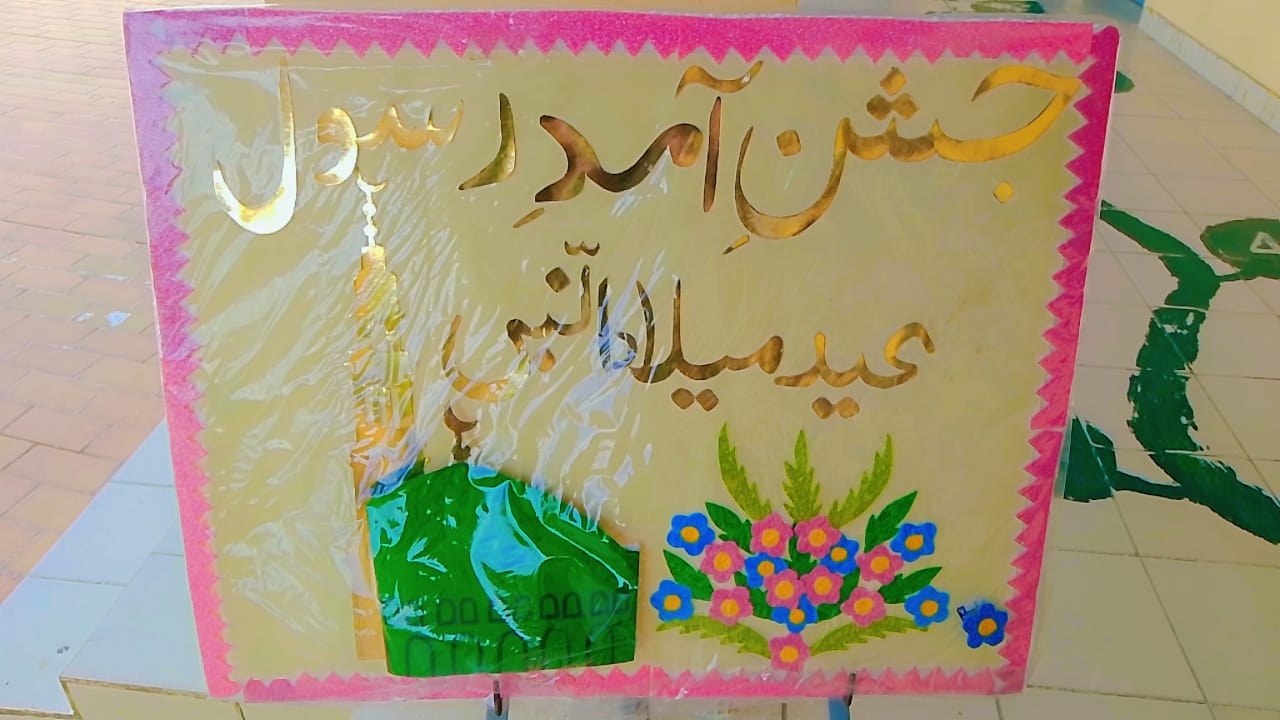 جشنِ آمدِ رسول
عید میلاد النّبی